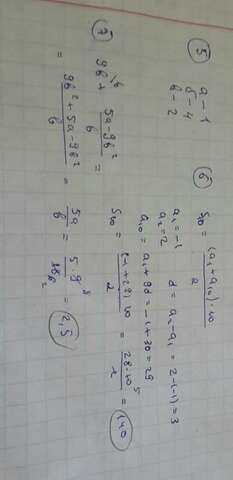 ⑤ a – 1
б – 4
в – 2
⑥ S₁₀ = (a₁ + a₁₀) · 10 / 2
a₁ = -1 d = a₂ - a₁ = 2 - (-1) = 3
a₂ = 2
a₁₀ = a₁ + 9d = -1 + 30 = 29
S₁₀ = (-1 + 29) · 10 / 2 = 28 · 10⁵ / 2 = 140
⑦ 9b\b + 5a - 9b² / b =
= 9b² + 5a - 9b² / b = 5a / b = 5 · 9 / 18 = 2,5